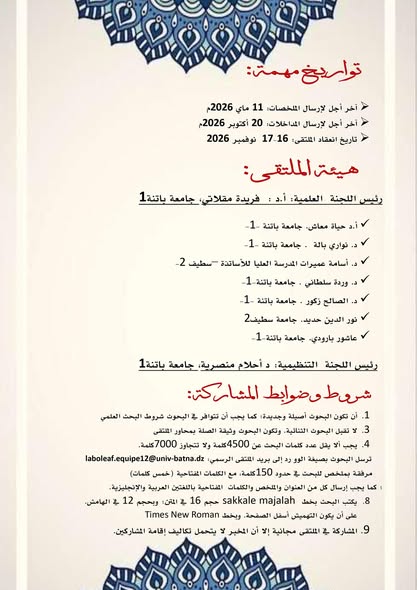 تواريخ مهمة:
➢ آخر أجل لإرسال الملخصات: 11 ماي 2026م
➢ آخر أجل لإرسال المداخلات: 20 أكتوبر 2026م
➢ تاريخ انعقاد الملتقى: 16-17 نوفمبر 2026
هيئة الملتقى:
رئيس اللجنة العلمية: أ.د : فريدة مقلاتي، جامعة باتنة1
✓ أ.د حياة معاش. جامعة باتنة –1-
✓ د. نواري بالة . جامعة باتنة –1-
✓ د. أسامة عميرات المدرسة العليا للأساتذة –سطيف 2-
✓ د. وردة سلطاني . جامعة باتنة–1-
✓ د. الصالح زكور . جامعة باتنة –1-
✓ نور الدين حديد. جامعة سطيف2
✓ عاشور بارودي. جامعة باتنة–1-
رئيس اللجنة التنظيمية: د أحلام منصرية، جامعة باتنة1
شروط وضوابط المشاركة:
1. أن تكون البحوث أصيلة وجديدة؛ كما يجب أن تتوافر في البحوث شروط البحث العلمي
3. لا تقبل البحوث الثنائية. وتكون البحوث وثيقة الصلة بمحاور الملتقى
4. يجب ألا يقل عدد كلمات البحث عن 4500كلمة ولا تتجاوز 7000كلمة.
ترسل البحوث بصيغة الوورد إلى بريد الملتقى الرسمي: laboleaf.equipe12@univ-batna.dz
مرفقة بملخص للبحث في حدود 150كلمة، مع الكلمات المفتاحية (خمس كلمات)
؛ كما يجب إرسال كل من العنوان والملخص والكلمات المفتاحية باللغتين العربية والإنجليزية.
8. يكتب البحث بخط sakkale majalah حجم 16 في المتن، وبحجم 12 في الهامش.
على أن يكون التهميش أسفل الصفحة. وبخط Times New Roman
9. المشاركة في الملتقى مجانية إلا أن المخبر لا يتحمل تكاليف إقامة المشاركين.